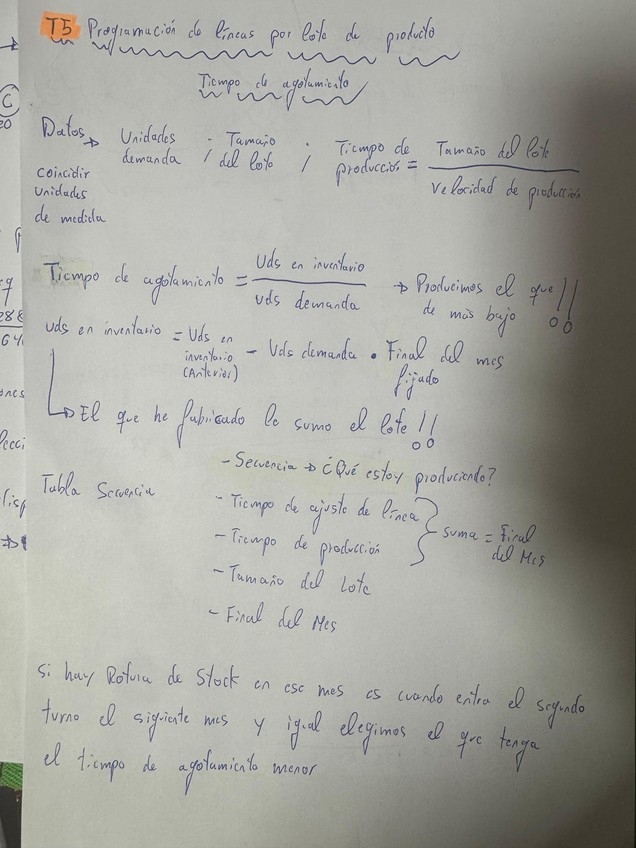 T5 Programación de líneas por lote de producto
Tiempo de agotamiento
Datos → Unidades demanda ; Tamaño del lote ; Tiempo de producción = Tamaño del lote / Velocidad de producción
coincidir
unidades
de medida
Tiempo de agotamiento = Uds en inventario / uds demanda → Producimos el que de más bajo !!
uds en inventario = Uds en inventario (Anterior) - Uds demanda • Final del mes fijado
↳ El que he fabricado le sumo el lote !!
Tabla Secuencia
- Secuencia → ¿Qué estoy produciendo?
- Tiempo de ajuste de línea
- Tiempo de producción
} suma = Final del Mes
- Tamaño del Lote
- Final del Mes
Si hay Rotura de Stock en ese mes es cuando entra el segundo
turno el siguiente mes y igual elegimos el que tenga
el tiempo de agotamiento menor